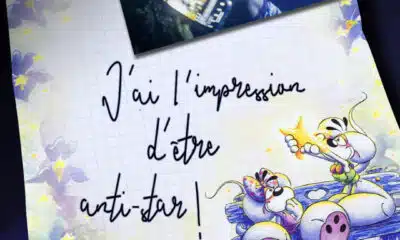 J'ai l'impression
d'être
anti-star !